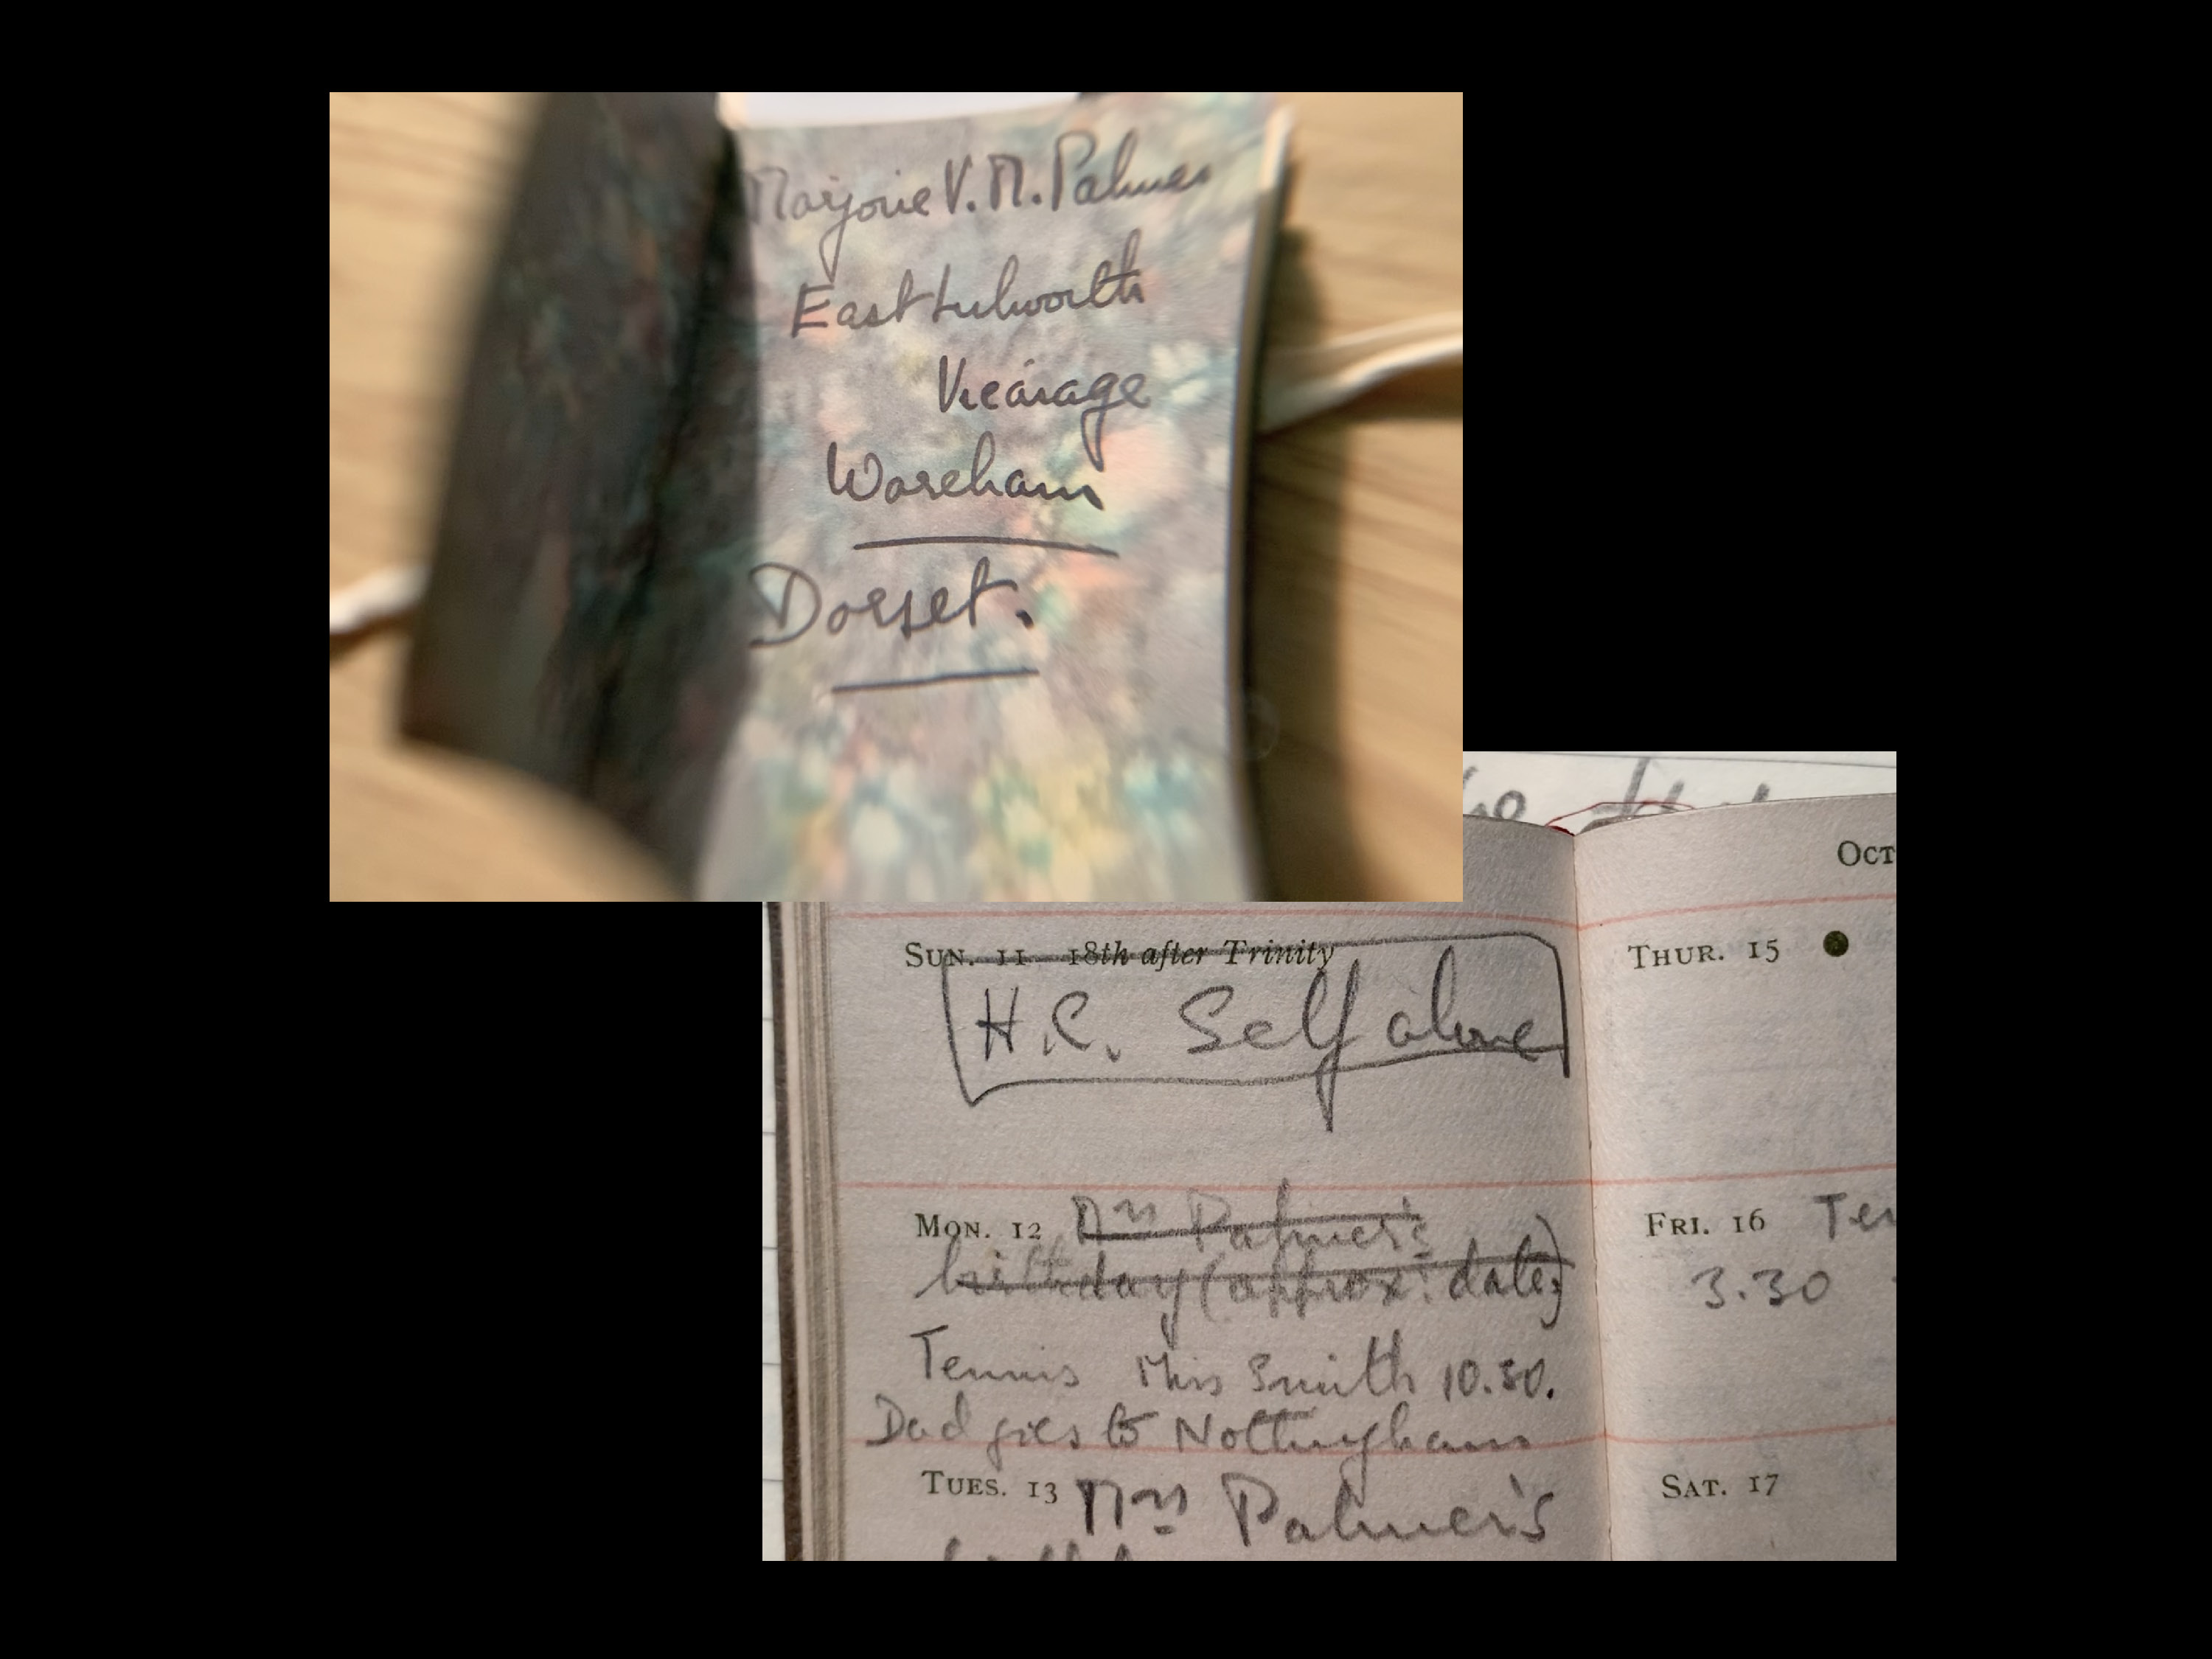 Marjorie V. M. Palmer
East Lulworth
Vicarage
Wareham
Dorset.
OCT
SUN. 11 18th after Trinity
H.C. Self alone
MON. 12 Mrs Palmer's
birthday (approx: date)
Tennis Miss Smith 10.30.
Dad goes to Nottingham
TUES. 13 Mrs Palmer's
THUR. 15
FRI. 16 Ten
3.30
SAT. 17